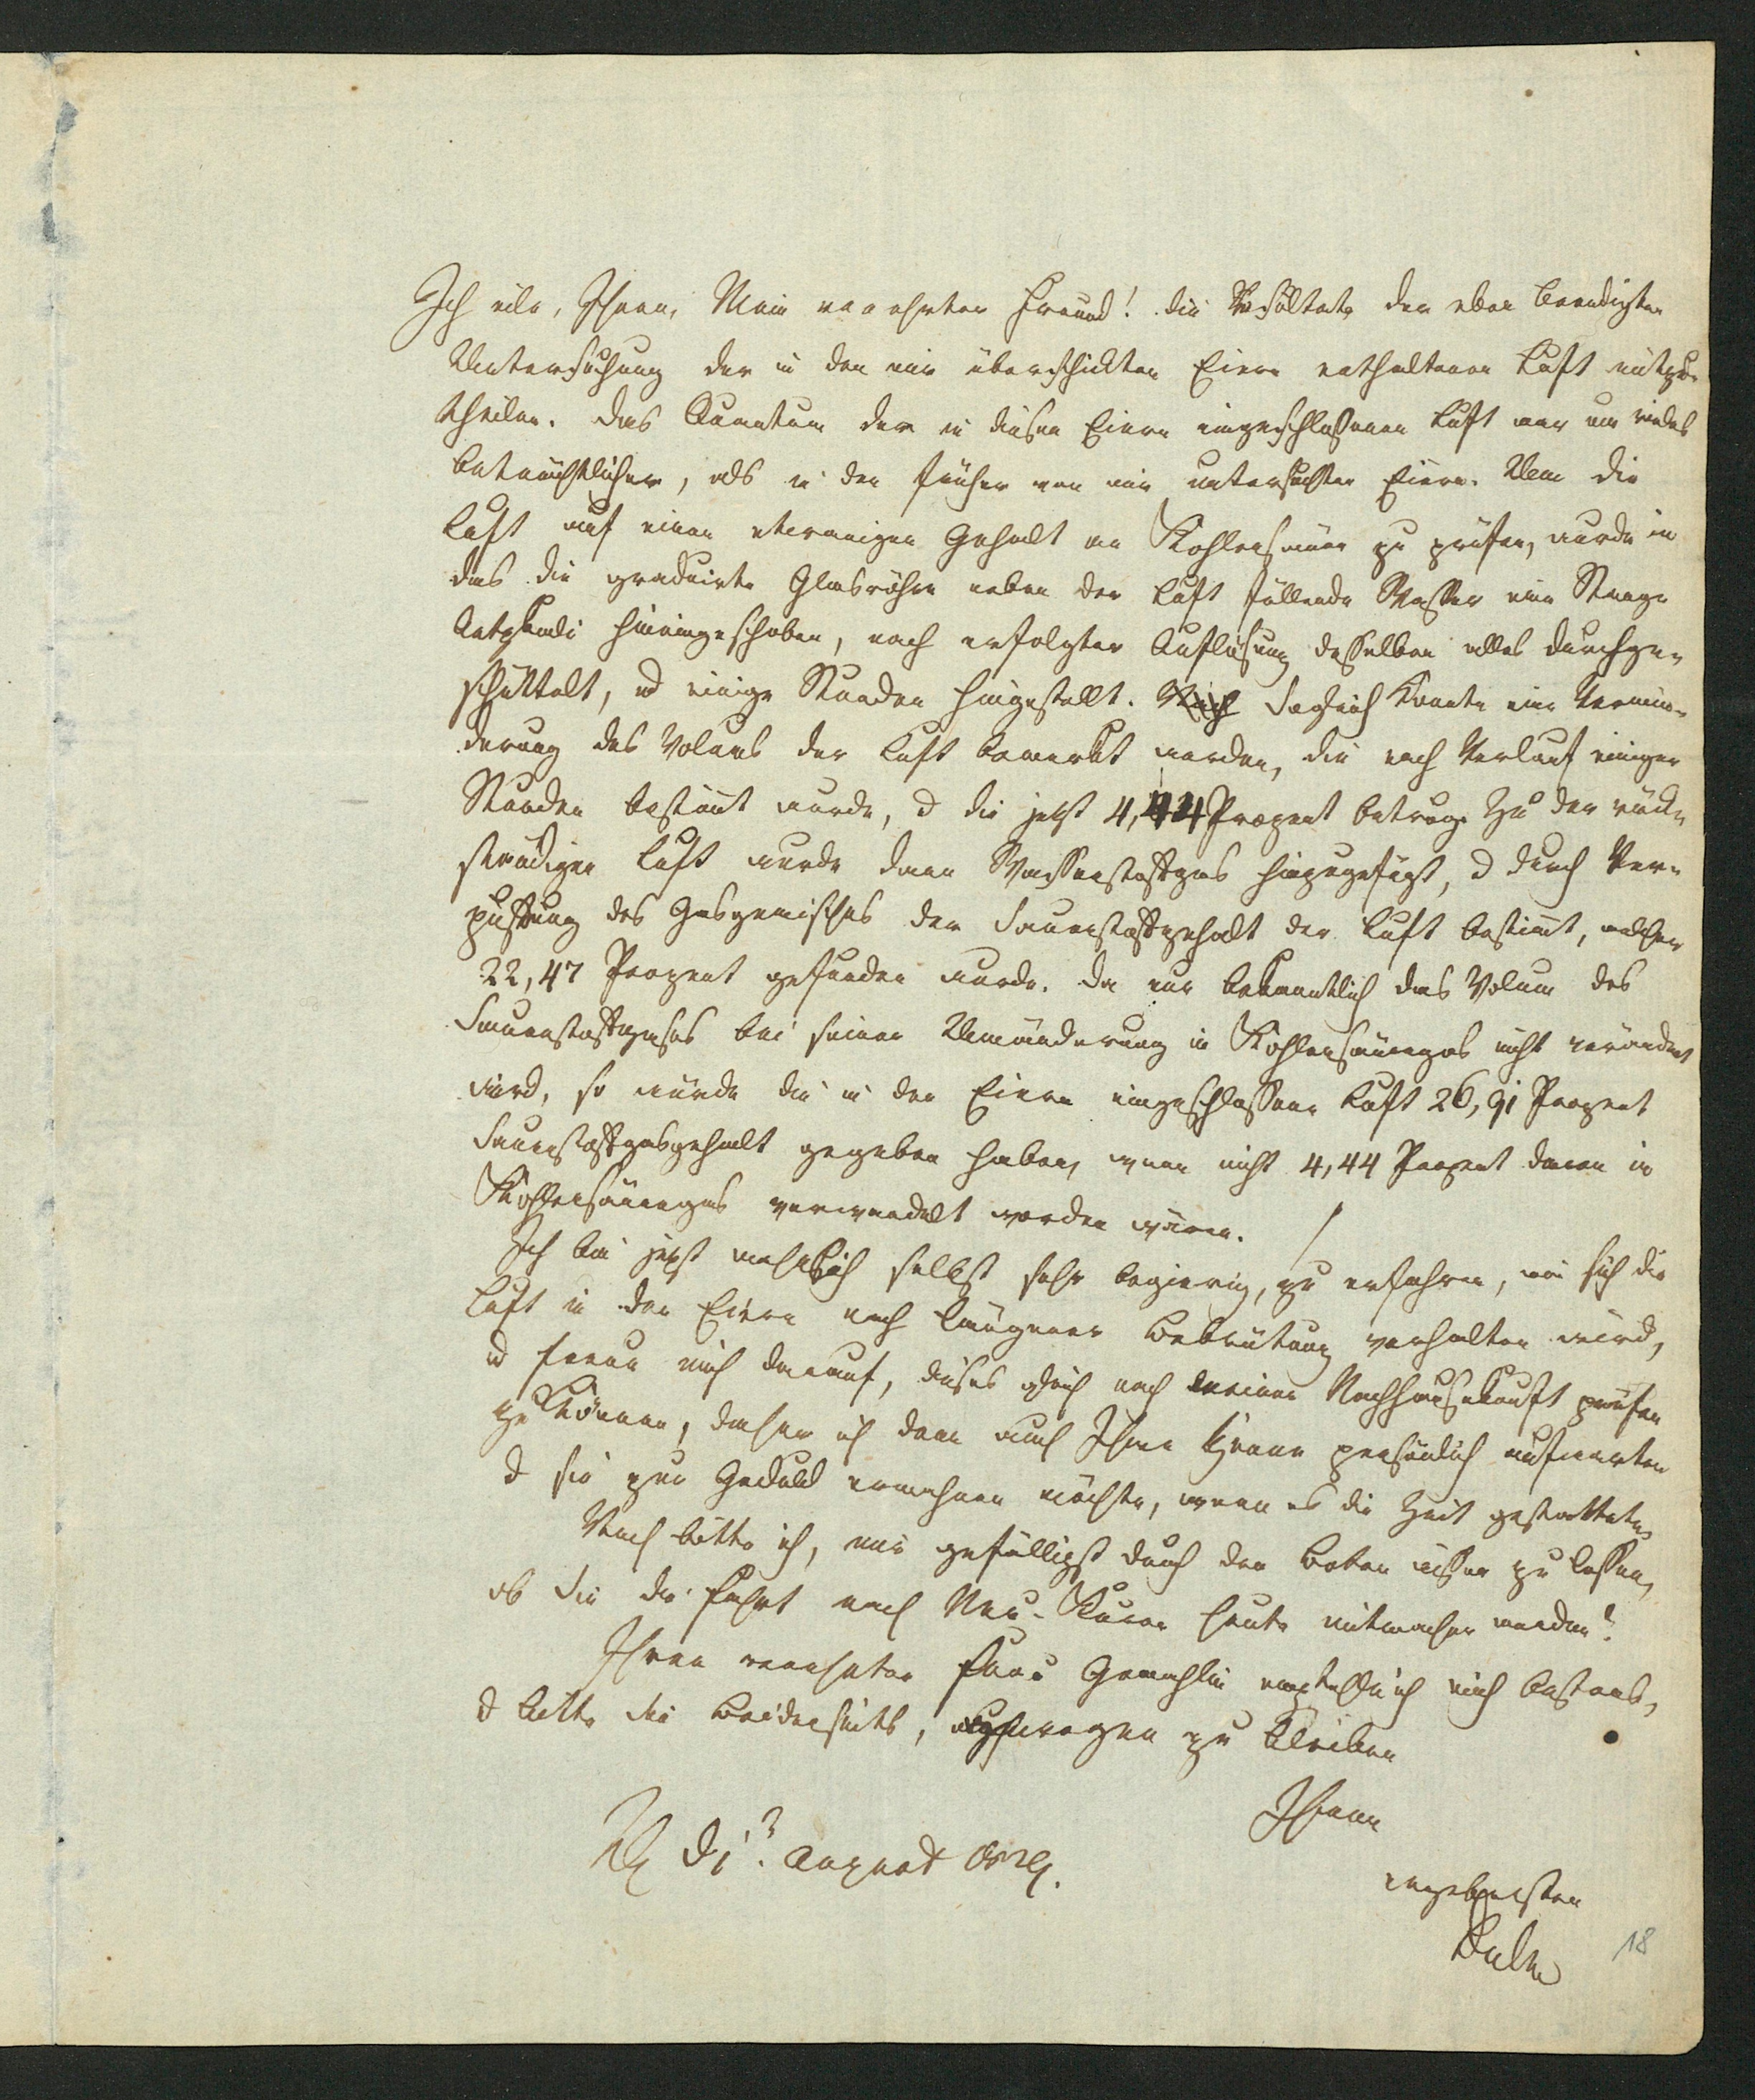 Ich eile, Ihnen, Mein verehrter Freund! die Resultate der eben beendigten
Untersuchung der in den mir überschickten Eiern enthaltenen Luft mitzu-
theilen. Das Quantum der in diesen Eiern eingeschloßenen Luft war um vieles
beträchtlicher, als in den früher von mir untersuchten Eiern. Um die
Luft auf einen etwanigen Gehalt an Kohlensäure zu prüfen, wurde in
das die graduirte Glasröhre neben der Luft füllende Wasser eine Stange
Aetzkali hineingeschoben, nach erfolgter Auflösung desselben alles durchge-
schüttelt, und einige Stunden hingestellt. Sogleich konnte eine Vermin-
derung des Volums der Luft bemerkt werden, die nach Verlauf einiger
Stunden bestimt wurde, d die jetzt 4,44 Prozent betrug. Zu der rück-
ständigen Luft wurde dann Wasserstoffgas hinzugefügt, d durch Ver-
puffung des Gasgemisches der Sauerstoffgehalt der Luft bestimt, welcher
22,47 Prozent gefunden wurde. Da nur bekanntlich das Volum des
Sauerstoffgases bei seiner Umänderung in Kohlensäuregas nicht verändert
wird, so würde die in den Eiern eingeschlossene Luft 26,91 Prozent
Sauerstoffgasgehalt gegeben haben, wenn nicht 4,44 Prozent davon in
Kohlensäuregas verwandelt worden wären.
Ich bin jetzt wahrlich selbst sehr begierig, zu erfahren, wie sich die
Luft in den Eiern nach längerer Bebrütung verhalten wird,
und freue mich darauf, dieses gleich nach meiner Nachhausekunft prüfen
zu können, daher ich dann auch Ihnen gerne persönlich aufwarten
d sie zur Geduld ermahnen möchte, wenn es die Zeit gestattete.
Noch bitte ich, mir gefälligst durch den Boten wissen zu lassen,
ob Sie die Fahrt nach Neu-Kuren heute mitmachen werden?
Ihrer verehrten Frau Gemahlin empfehle ich mich bestens,
d bitte Sie beiderseits, gewogen zu bleiben
Ihrem
August
ergebensten
Dulk
18